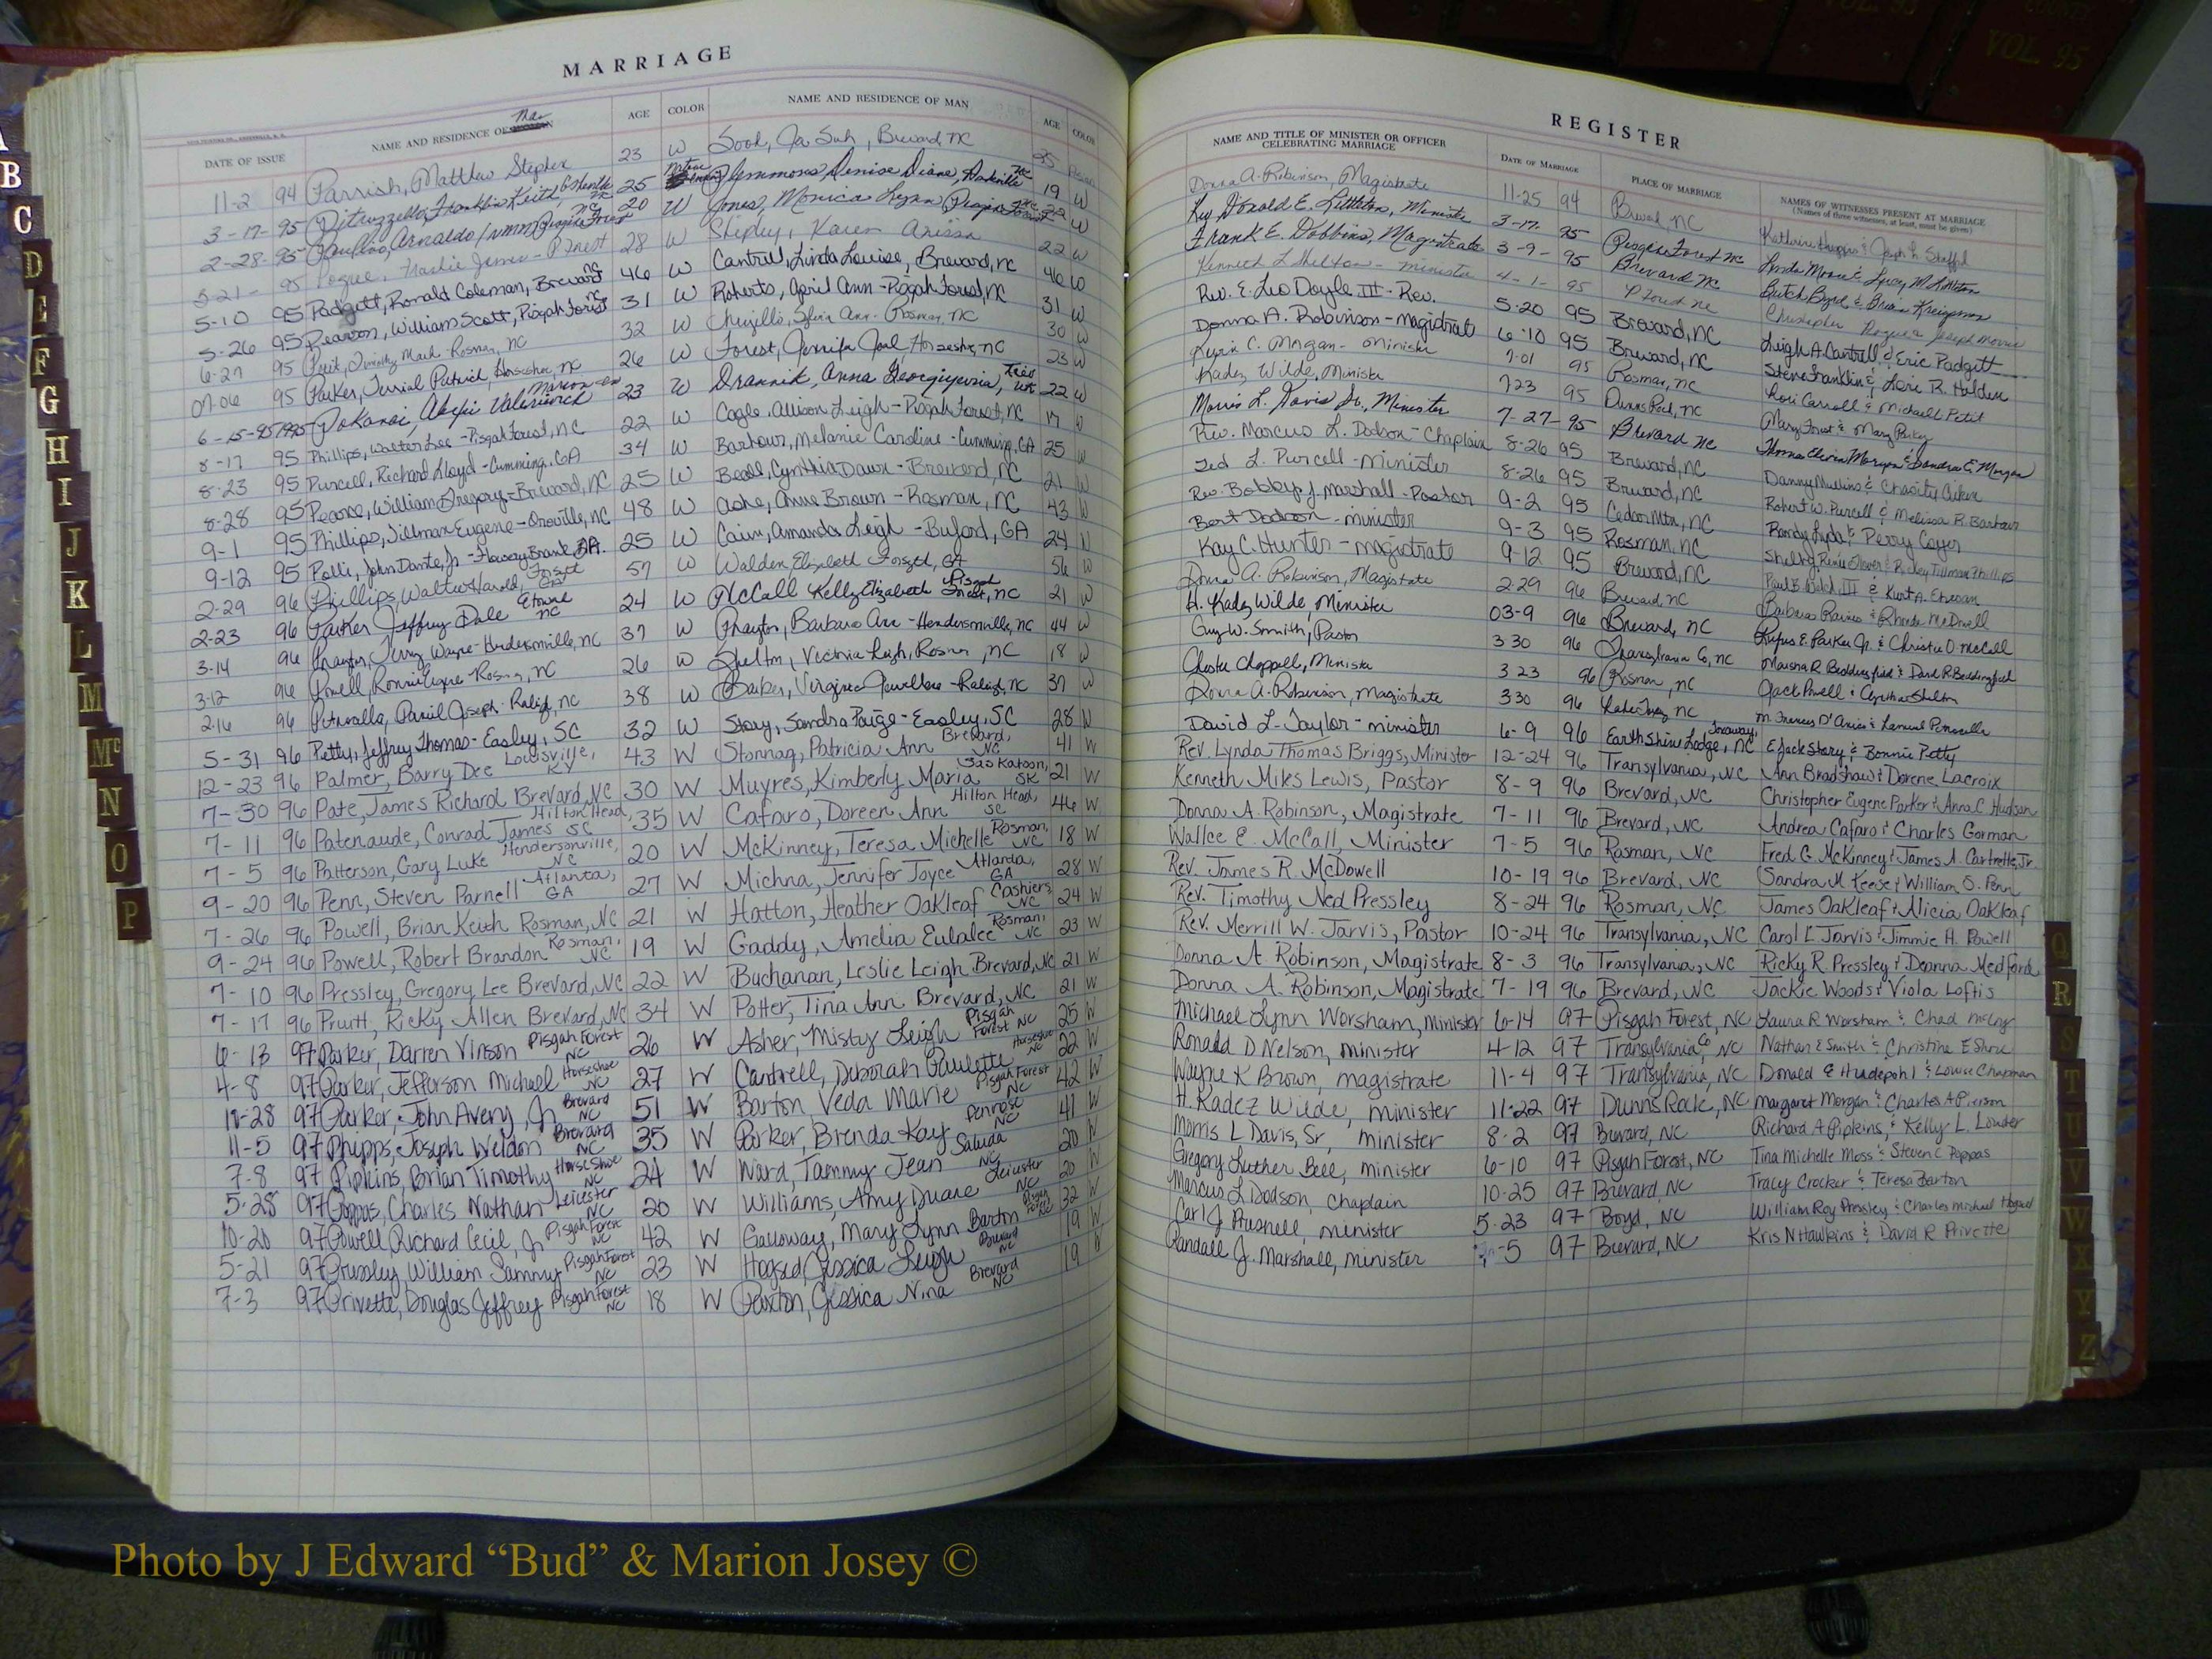 MARRIAGE
DATE OF ISSUE NAME AND RESIDENCE OF Man AGE COLOR NAME AND RESIDENCE OF MAN AGE COLOR
11-2 94 Parrish, Matthew Stephen 23 W Sook, Ja Suh, Brevard, NC 35
3-17-95 Franklin Keith 25 Jemmons, Denise Diane 19 W
2-28-95 Paulino, Arnaldo (NMN) Pisgah Forest NC 20 W Jones, Monica Lynn Pisgah Forest NC 22 W
3-21- 95 Pogue, James - P Forest 28 W Shipley, Karen 22 W
5-10 95 Padgett, Ronald Coleman, Brevard NC 46 W Cantrell, Linda Louise, Brevard, NC 46 W
5-26 95 Pearson, William Scott, Pisgah Forest NC 31 W Roberts, April Ann - Pisgah Forest, NC 31 W
6-27 95 Petit, Timothy Mark - Rosman, NC 32 W Ann - Rosman, NC 30 W
07-06 95 Parker, Patrick, Horseshoe, NC 26 W Forest, Jennifer Horseshoe, NC 23 W
6-15-95 23 W Drannik, Anna 22 W
8-17 95 Phillips, Walter Lee - Pisgah Forest, NC 22 W Cagle, Allison Leigh - Pisgah Forest, NC 17 W
8-23 95 Purcell, Richard Lloyd - Cumming, GA 34 W Barbour, Melanie Caroline - Cumming, GA 25 W
8-28 95 Pearce, William Gregory - Brevard, NC 25 W Beall, Cynthia Dawn - Brevard, NC 21 W
9-1 95 Phillips, Tillman Eugene - NC 48 W Ashe, Anna Brown - Rosman, NC 43 W
9-12 95 Polli, John Dante, Jr - Flowery Branch, GA. 25 W Cain, Amanda Leigh - Buford, GA 24 W
2-29 96 Phillips, Walter Harold, Forsyth GA 57 W Walden, Elizabeth Forsyth, GA 56 W
2-23 96 Parker Jeffrey Dale Etowah NC 24 W McCall Kelly Elizabeth Pisgah Forest, NC 21 W
3-14 96 Prayter, Jerry Wayne - Hendersonville, NC 37 W Prayter, Barbara Ann - Hendersonville, NC 44 W
3-12 96 Powell, Ronnie Eugene - Rosman, NC 26 W Shelton, Victoria Leigh, Rosman, NC 18 W
2-16 96 Joseph - Raleigh, NC 38 W Barker, Virginia - Raleigh, NC 37 W
5-31 96 Petty, Jeffrey Thomas - Easley, SC 32 W Story, Sandra Paige - Easley, SC 28 W
12-23 96 Palmer, Barry Dee Louisville, KY 43 W Stonnag, Patricia Ann Brevard, NC 41 W
7-30 96 Pate, James Richard Brevard, NC 30 W Muyres, Kimberly Maria Saskatoon, SK 21 W
7-11 96 Patenaude, Conrad James Hilton Head, SC 35 W Cafaro, Doreen Ann Hilton Head, SC 46 W
7-5 96 Patterson, Gary Luke Hendersonville, NC 20 W McKinney, Teresa Michelle Rosman, NC 18 W
9-20 96 Penn, Steven Parnell Atlanta, GA 27 W Michna, Jennifer Joyce Atlanta, GA 28 W
7-26 96 Powell, Brian Keith Rosman, NC 21 W Hatton, Heather Oakleaf Cashiers NC 24 W
9-24 96 Powell, Robert Brandon Rosman, NC 19 W Gaddy, Amelia Eulalee Rosman, NC 23 W
7-10 96 Pressley, Gregory Lee Brevard, NC 22 W Buchanan, Leslie Leigh Brevard, NC 21 W
7-17 96 Pruitt, Ricky Allen Brevard, NC 34 W Potter, Tina Ann Brevard, NC 21 W
6-13 97 Parker, Darren Vinson Pisgah Forest NC 26 W Asher, Misty Leigh Pisgah Forest NC 25 W
4-8 97 Parker, Jefferson Michael Horseshoe NC 27 W Cantrell, Deborah Paulette Horseshoe NC 22 W
10-28 97 Parker, John Avery, Jr Brevard NC 51 W Barton, Veda Marie Pisgah Forest NC 42 W
11-5 97 Phipps, Joseph Weldon Brevard NC 35 W Parker, Brenda Kay Penrose NC 41 W
7-8 97 Pipkins, Brian Timothy Horse Shoe NC 24 W Ward, Tammy Jean Saluda NC 20 W
5-28 97 Poppas, Charles Nathan Leicester NC 20 W Williams, Amy Duane Leicester NC 20 W
10-20 97 Powell, Richard Cecil, Jr Pisgah Forest NC 42 W Galloway, Mary Lynn Barton Pisgah Forest NC 32 W
5-21 97 Pressley, William Sammy Pisgah Forest NC 23 W Hogsed, Jessica Leigh Brevard NC 19 W
7-3 97 Privette, Douglas Jeffrey Pisgah Forest NC 18 W Paxton, Jessica Nina Brevard NC 19 W
REGISTER
NAME AND TITLE OF MINISTER OR OFFICER CELEBRATING MARRIAGE DATE OF MARRIAGE PLACE OF MARRIAGE NAMES OF WITNESSES PRESENT AT MARRIAGE
(Names of three witnesses, at least, must be given)
Donna A. Robinson, Magistrate 11-25 94 Brevard, NC
Rev Donald E. Littleton, Minister 3-17- 95 Pisgah Forest NC Linda Moore &
Frank E. Dobbins, Magistrate 3-9- 95 Brevard NC Butch Byrd & Brian
Kenneth L Shelton - minister 4-1- 95 P Forest NC Christopher Pogue & Joseph Morris
Rev. E. Leo Doyle III - Rev. 5-20 95 Brevard, NC Leigh A Cantrell & Eric Padgett
Donna A. Robinson - Magistrate 6-10 95 Brevard, NC Steve Franklin & Lorie R. Holden
C. Morgan - Minister 7-01 95 Rosman, NC Lori Carroll & Michael Petit
Kadez Wilde, Minister 7 23 95 Dunns Rock, NC Mary Forest & Mary Parker
Morris L. Davis Sr., Minister 7-27-95 Brevard NC Thomas Morgan & Sandra E. Morgan
Rev. Marcus L. Dodson - Chaplain 8-26 95 Brevard, NC Danny Mullins & Chasity Aiken
Ted L. Purcell - Minister 8-26 95 Brevard, NC Robert W. Purcell & Melissa R. Barbour
Rev. Bobby J. Marshall - Pastor 9-2 95 Cedar Mtn, NC Randy Lyda & Perry Coyer
Bert Dodson - minister 9-3 95 Rosman, NC Shelby Renie Glover & Rickey Tillman Phillips
Kay C. Hunter - magistrate 9-12 95 Brevard, NC Paul B. III & Kurt A.
Donna A. Robinson, Magistrate 2-29 96 Brevard, NC Barbara Raines & Rhonda McDowell
H. Kadez Wilde, Minister 03-9 96 Brevard, NC Rufus E. Parker Jr. & Christie O. McCall
Guy W. Smith, Pastor 3 30 96 Transylvania Co, NC Marsha R. Beddingfield & Darl R. Beddingfield
Chester Chappell, Minister 3 23 96 Rosman, NC Jack Powell & Cynthia Shelton
Donna A. Robinson, Magistrate 3 30 96 Lake Toxaway NC M. Frances
David L. Taylor - minister 6-9 96 Earthshine Lodge, Toxaway, NC E Jack Story & Bonnie Petty
Rev. Lynda Thomas Briggs, Minister 12-24 96 Transylvania, NC Ann Bradshaw & Dorene Lacroix
Kenneth Miles Lewis, Pastor 8-9 96 Brevard, NC Christopher Eugene Parker & Anna C. Hudson
Donna A. Robinson, Magistrate 7-11 96 Brevard, NC Andrea Cafaro & Charles Gorman
Wallce E. McCall, Minister 7-5 96 Rosman, NC Fred G. McKinney & James A. Cartrette, Jr.
Rev. James R. McDowell 10-19 96 Brevard, NC Sandra M Keese & William S. Penn
Rev. Timothy Ned Pressley 8-24 96 Rosman, NC James Oakleaf & Alicia Oakleaf
Rev. Merrill W. Jarvis, Pastor 10-24 96 Transylvania, NC Carol L Jarvis & Jimmie H. Powell
Donna A. Robinson, Magistrate 8-3 96 Transylvania, NC Ricky R. Pressley & Deanna Medford
Donna A. Robinson, Magistrate 7-19 96 Brevard, NC Jackie Woods & Viola Loftis
Michael Lynn Worsham, Minister 6-14 97 Pisgah Forest, NC Laura R Worsham & Chad
Ronald D Nelson, minister 4-12 97 Transylvania Co, NC Nathan E Smith & Christine E
Wayne K Brown, magistrate 11-4 97 Transylvania, NC Donald E Hudepohl & Louise Chapman
H. Kadez Wilde, minister 11-22 97 Dunns Rock, NC Margaret Morgan & Charles A Pierson
Morris L Davis, Sr, minister 8-2 97 Brevard, NC Richard A Pipkins, & Kelly L. Lowder
Gregory Luther Bell, minister 6-10 97 Pisgah Forest, NC Tina Michelle Moss & Steven C Poppas
Marcus L Dodson, Chaplain 10-25 97 Brevard, NC Tracy Crocker & Teresa Barton
Carl J. Presnell, minister 5-23 97 Boyd, NC William Roy Pressley & Charles Michael Hogsed
Randall J. Marshall, minister -5 97 Brevard, NC Kris N Hawkins & David R Privette
B
C
D
E
F
G
H
I
J
K
L
M
Mc
N
O
P
Q
R
S
T
U
V
W
X
Y
Z
VOL. 95
Photo by J Edward “Bud” & Marion Josey ©